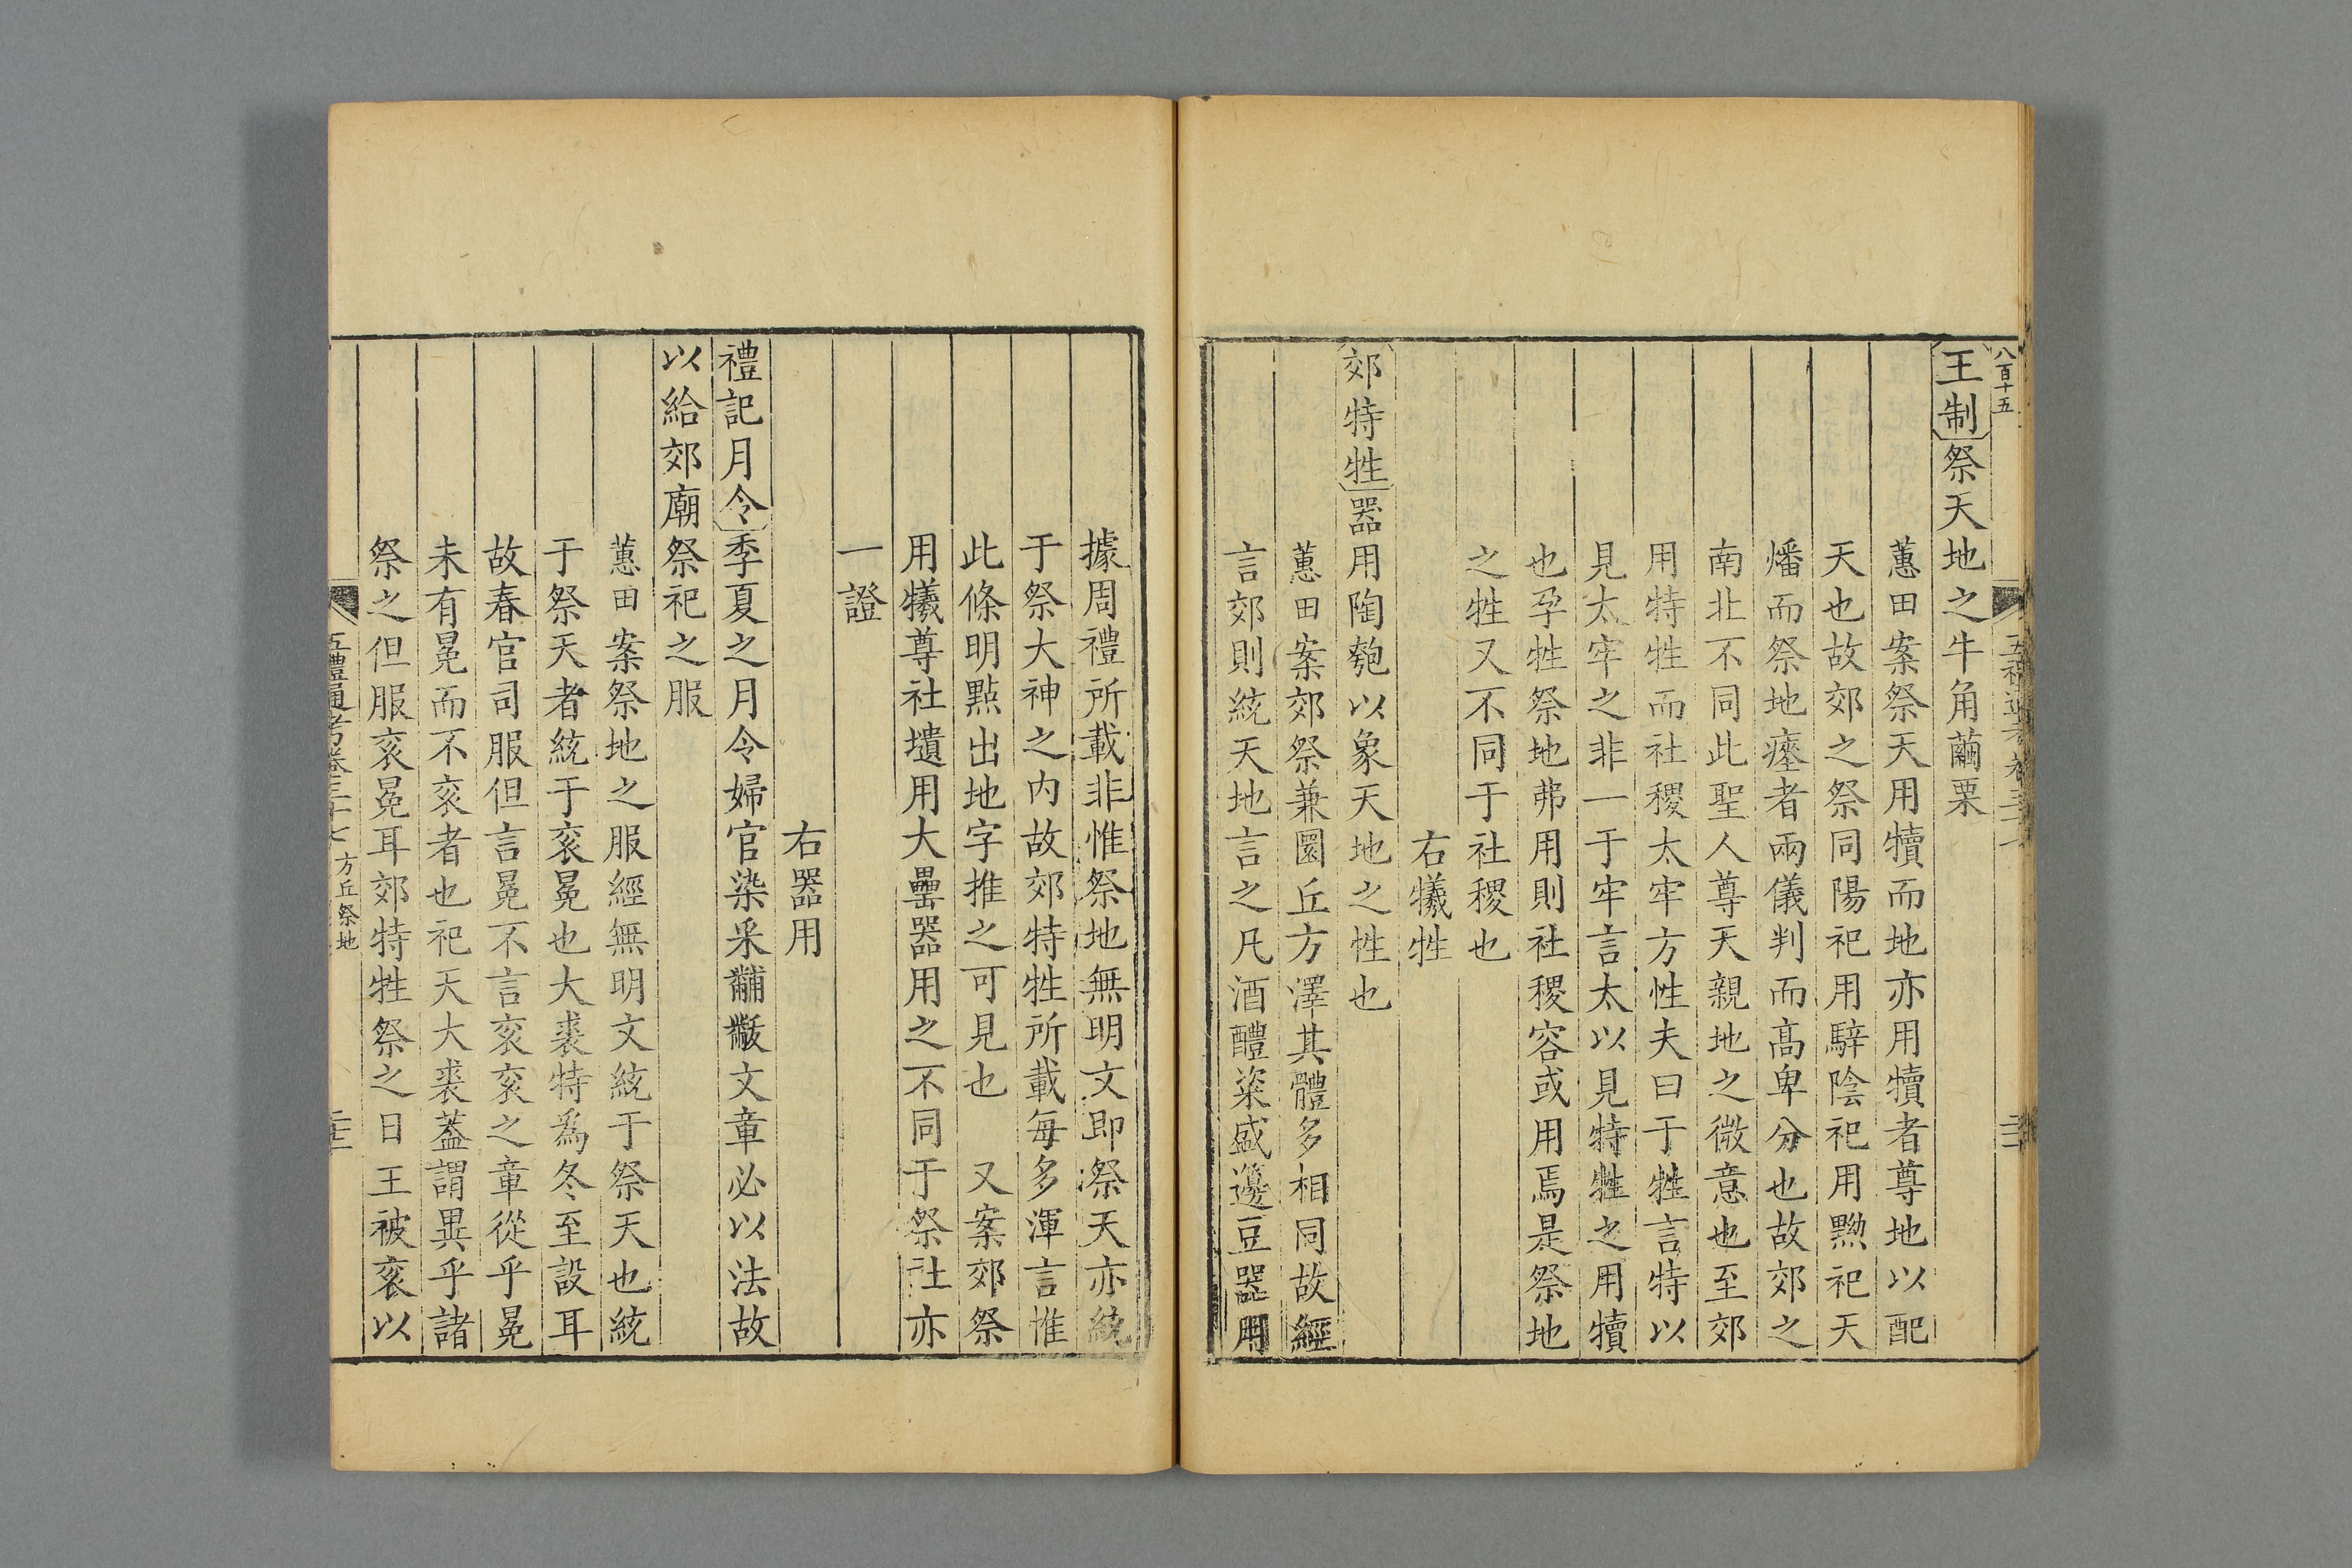 八百十五
王制祭天地之牛角繭栗
蕙田案祭天用犢而地亦用犢者尊地以配
天也故郊之祭同陽祀用騂陰祀用黝祀天
燔而祭地瘞者兩儀判而高卑分也故郊之
南北不同此聖人尊天親地之微意也至郊
用特牲而社稷太牢方性夫曰于牲言特以
見太牢之非一于牢言太以見特牲之用犢
也孕牲祭地弗用則社稷容或用焉是祭地
之牲又不同于社稷也
右犧牲
郊特牲器用陶匏以象天地之性也
蕙田案郊祭兼圜丘方澤其體多相同故經
言郊則統天地言之凡酒醴粢盛籩豆器用
據周禮所載非惟祭地無明文即祭天亦統
于祭大神之内故郊特牲所載每多渾言惟
此條明點出地字推之可見也 又案郊祭
用犧尊社壝用大罍器用之不同于祭社亦
一證
右器用
禮記月令季夏之月令婦官染采黼黻文章必以法故
以給郊廟祭祀之服
蕙田案祭地之服經無明文統于祭天也統
于祭天者統于衮冕也大裘特爲冬至設耳
故春官司服但言冕不言衮衮之章從乎冕
未有冕而不衮者也祀天大裘蓋謂異乎諸
祭之但服衮冕耳郊特牲祭之日王被衮以
五禮通考卷三十七 方丘祭地